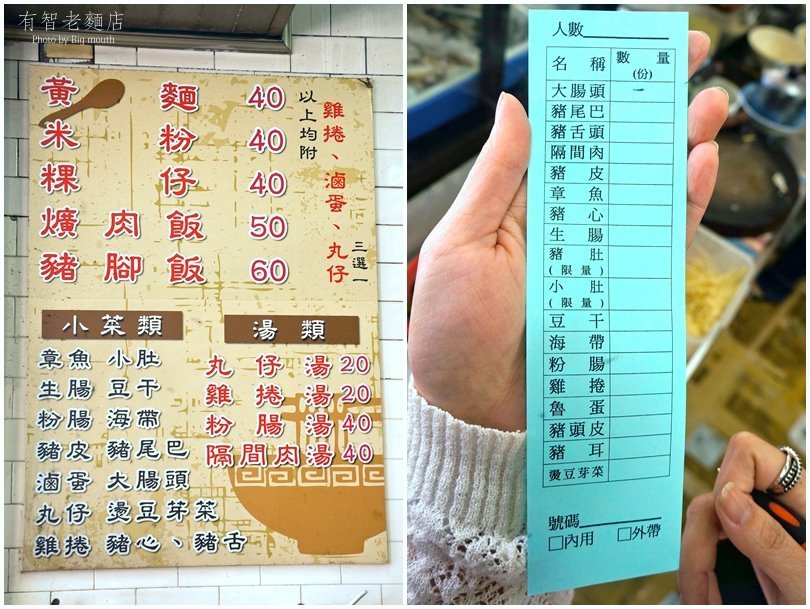 有智老麵店
Photo by Big mouth
黃麵 40
米粉 40
粿仔 40
爌肉飯 50
豬腳飯 60
以上均附
雞捲、滷蛋、丸仔
三選一
小菜類
章魚 小肚
生腸 豆干
粉腸 海帶
豬皮 豬尾巴
滷蛋 大腸頭
丸仔 燙豆芽菜
雞捲 豬心、豬舌
湯類
丸仔湯 20
雞捲湯 20
粉腸湯 40
隔間肉湯 40
人數
名稱 數量(份)
大腸頭 一
豬尾巴
豬舌頭
隔間肉
豬皮
章魚
豬心
生腸
豬肚
(限量)
小肚
(限量)
豆干
海帶
粉腸
雞捲
魯蛋
豬頭皮
豬耳
燙豆芽菜
號碼
□內用 □外帶